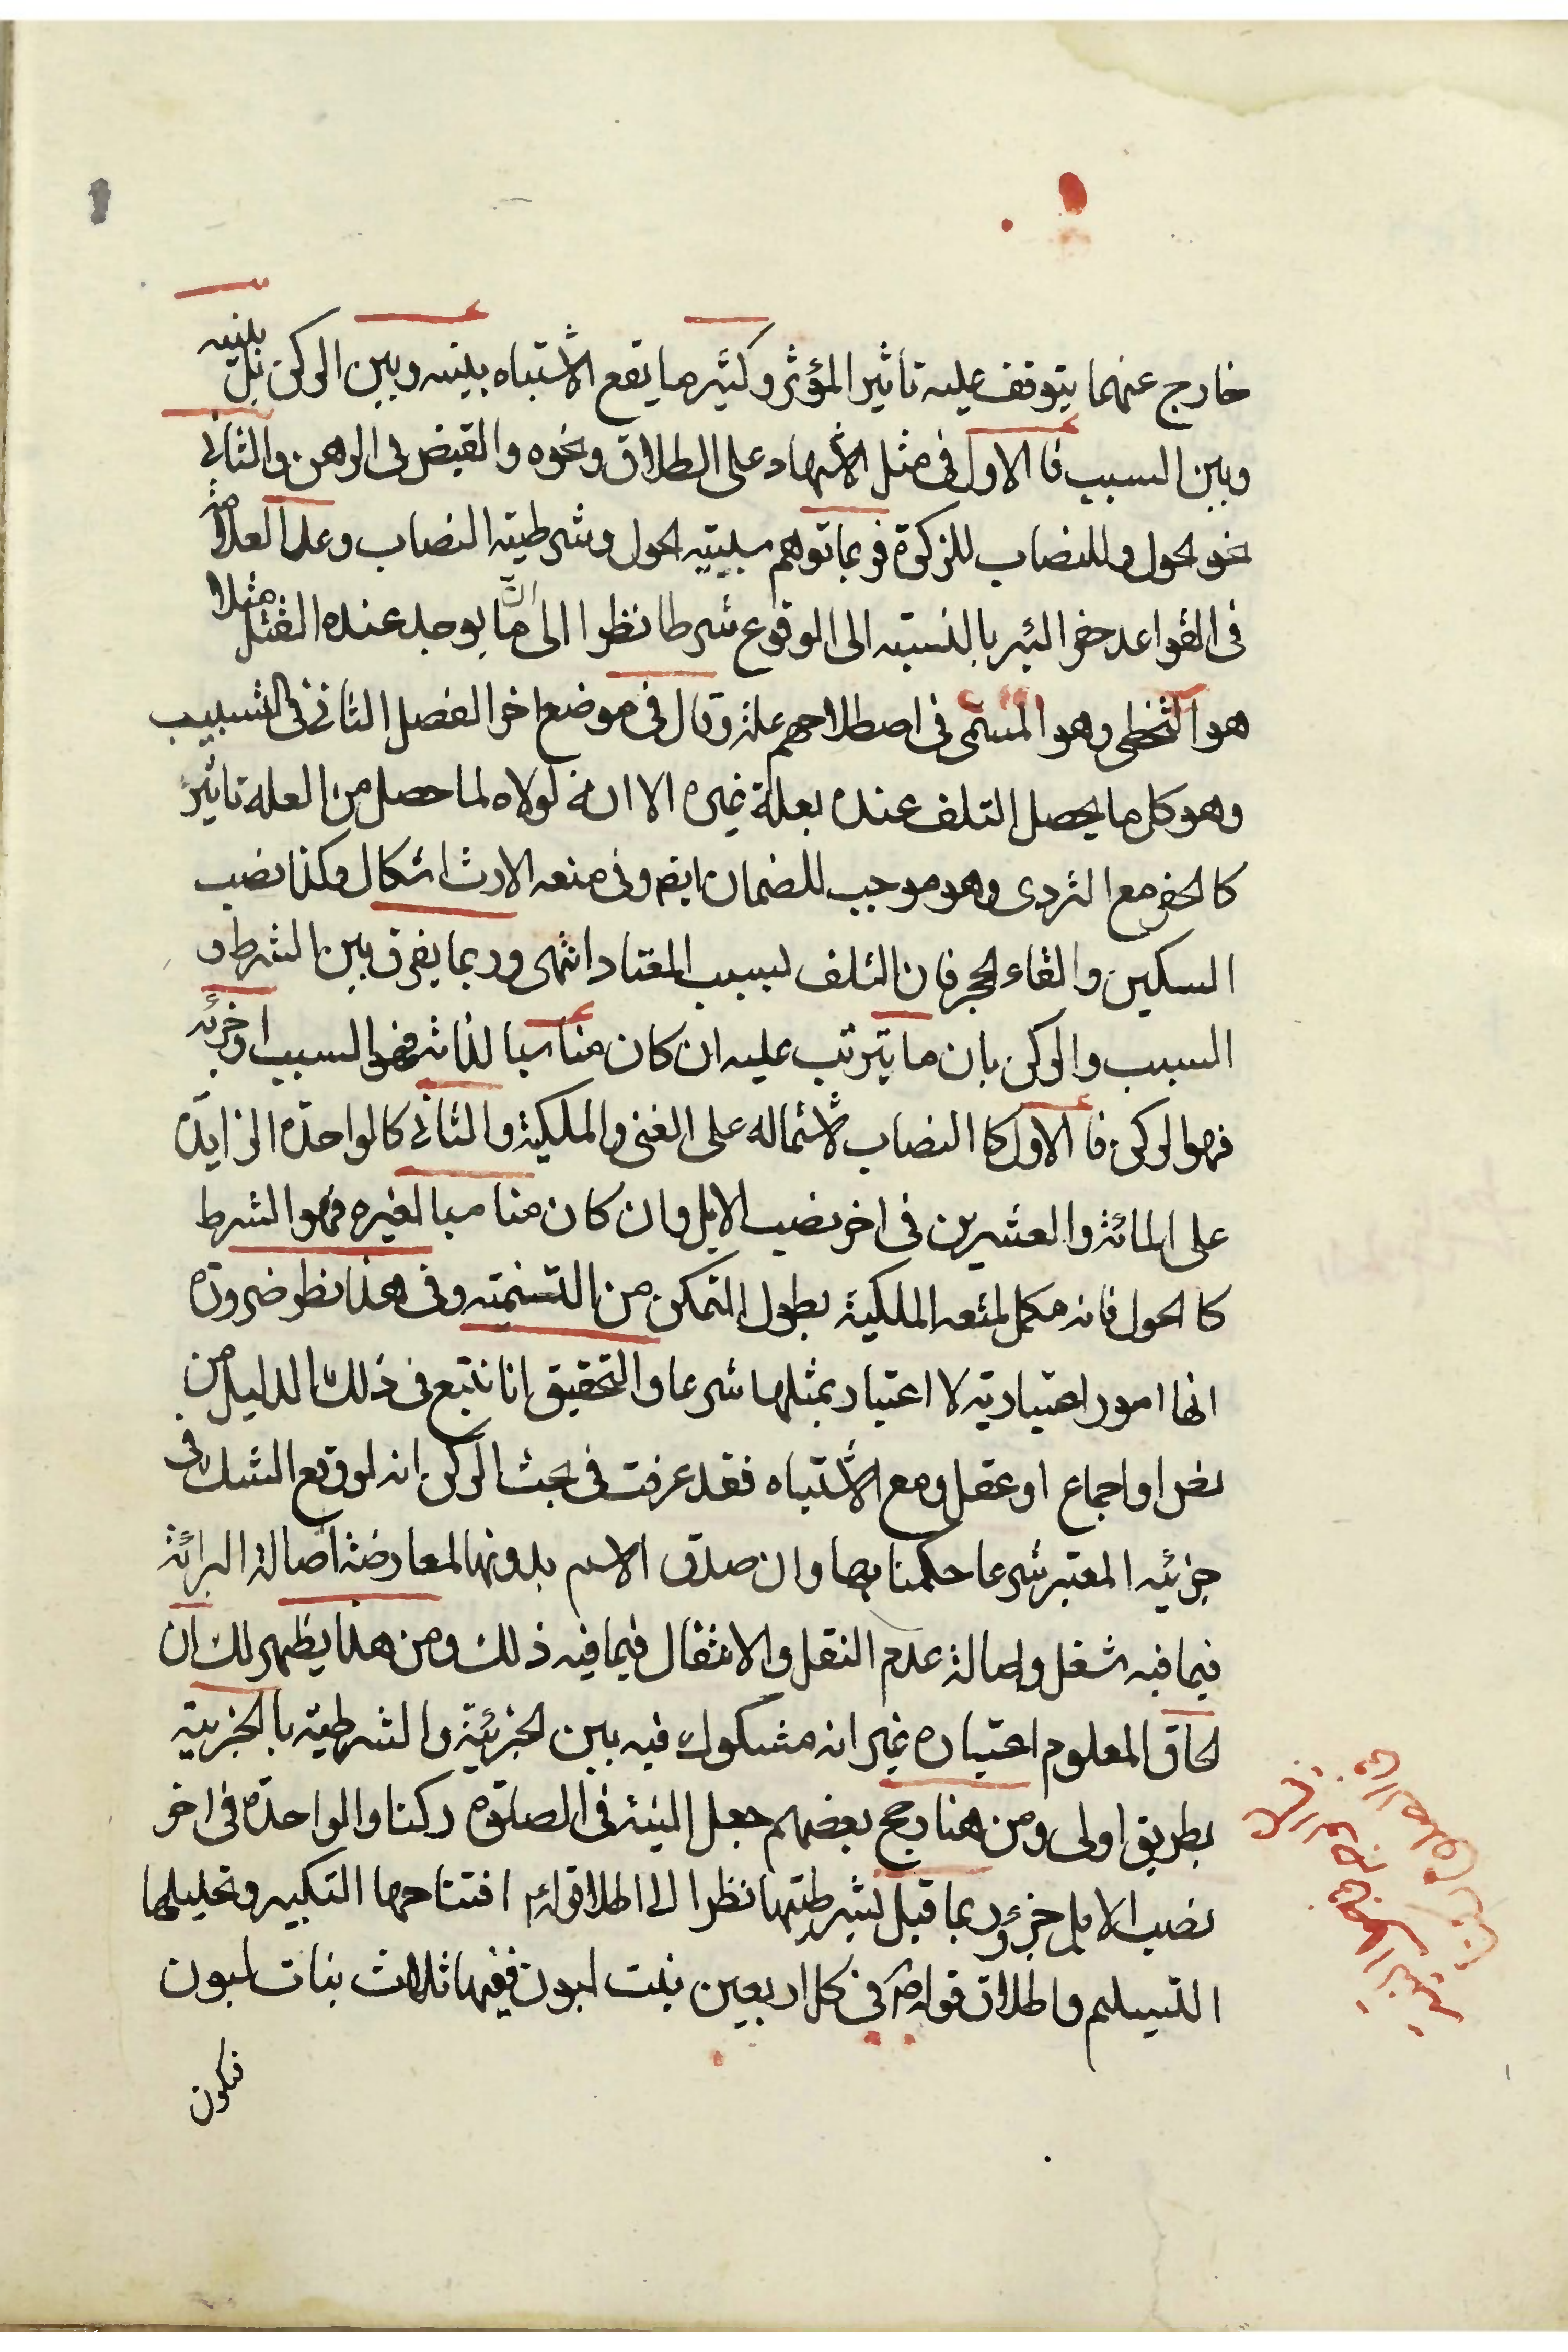 خارج عنهما يتوقف عليه تاثير المؤثر وكثير ما يقع الاشتباه بينه وبين الركن بل بينه
وبين السبب فا الاول فى مثل الاشهاد على الطلاق ونحوه والقبض فى الرهن والثانى
نحو لحول وللنصاب للزكوة فربما توهم سببيته لحول وشرطية النصاب وعد العلامة
فى القواعد حفر البئر بالنسبته الى الوقوع شرطا نظرا الى انّ ما يوجد عنده القتل مثلا
هو التخطى وهو المسمى فى اصطلاحهم علة وقال فى موضع اخر الفصل الثانى فى التسبيب
وهو كل ما يحصل التلف عنده بعلة غيره الا انه لولاه لما حصل من العلة تاثير
كالحفر مع التردى وهو موجب للضمان ايضا وفى منعه الارث اشكال وكذا نصب
السكين والقاء لحجر فان التلف لسبب المعتاد انتهى وربما يفرق بين الشرط و
السبب والركن بان ما يترتب عليه ان كان مناسبا لذاته فهو السبب او جزئه
فهو الركن فا الاول كا النصاب لاشتماله على الغنى والملكية والثانى كالواحدة الزايدة
على المائة والعشرين فى اخر نصب الابل وان كان مناسبا لغيره فهو الشرط
كا لحول فانه مكمل لمتعه الملكية بطول التمكن من التنميته وفى هذا نظر ضرورة
انها امور اعتبارية لا اعتبار بمثلها شرعا والتحقيق انا نتبع فى ذلك الدليل من
نص او اجماع او عقل ومع الاشتباه فقد عرفت فى بحث الركن انه لو وقع الشك فى
جزئيه المعتبر شرعا حكمنا بها وان صدق الاسم بدونها لمعارضة اصالة البرائة
فيما فيه شغل واصالة عدم النقل والانتقال فيما فيه ذلك ومن هذا يظهر لك ان
لحاق المعلوم اعتباره غير انه مشكوك فيه بين لجزئية والشرطية بالجزيية
بطريق اولى ومن هنا رجح بعضهم جعل النية فى الصلوة ركنا والواحدة فى اخر
نصب الابل جزء وربما قيل بشرطيتها نظرا الى اطلاق قوله افتتاحها التكبير وتحليلها
التسليم واطلاق قوله فى كل اربعين بنت لبون ففيها ثلاث بنات لبون
فتكون